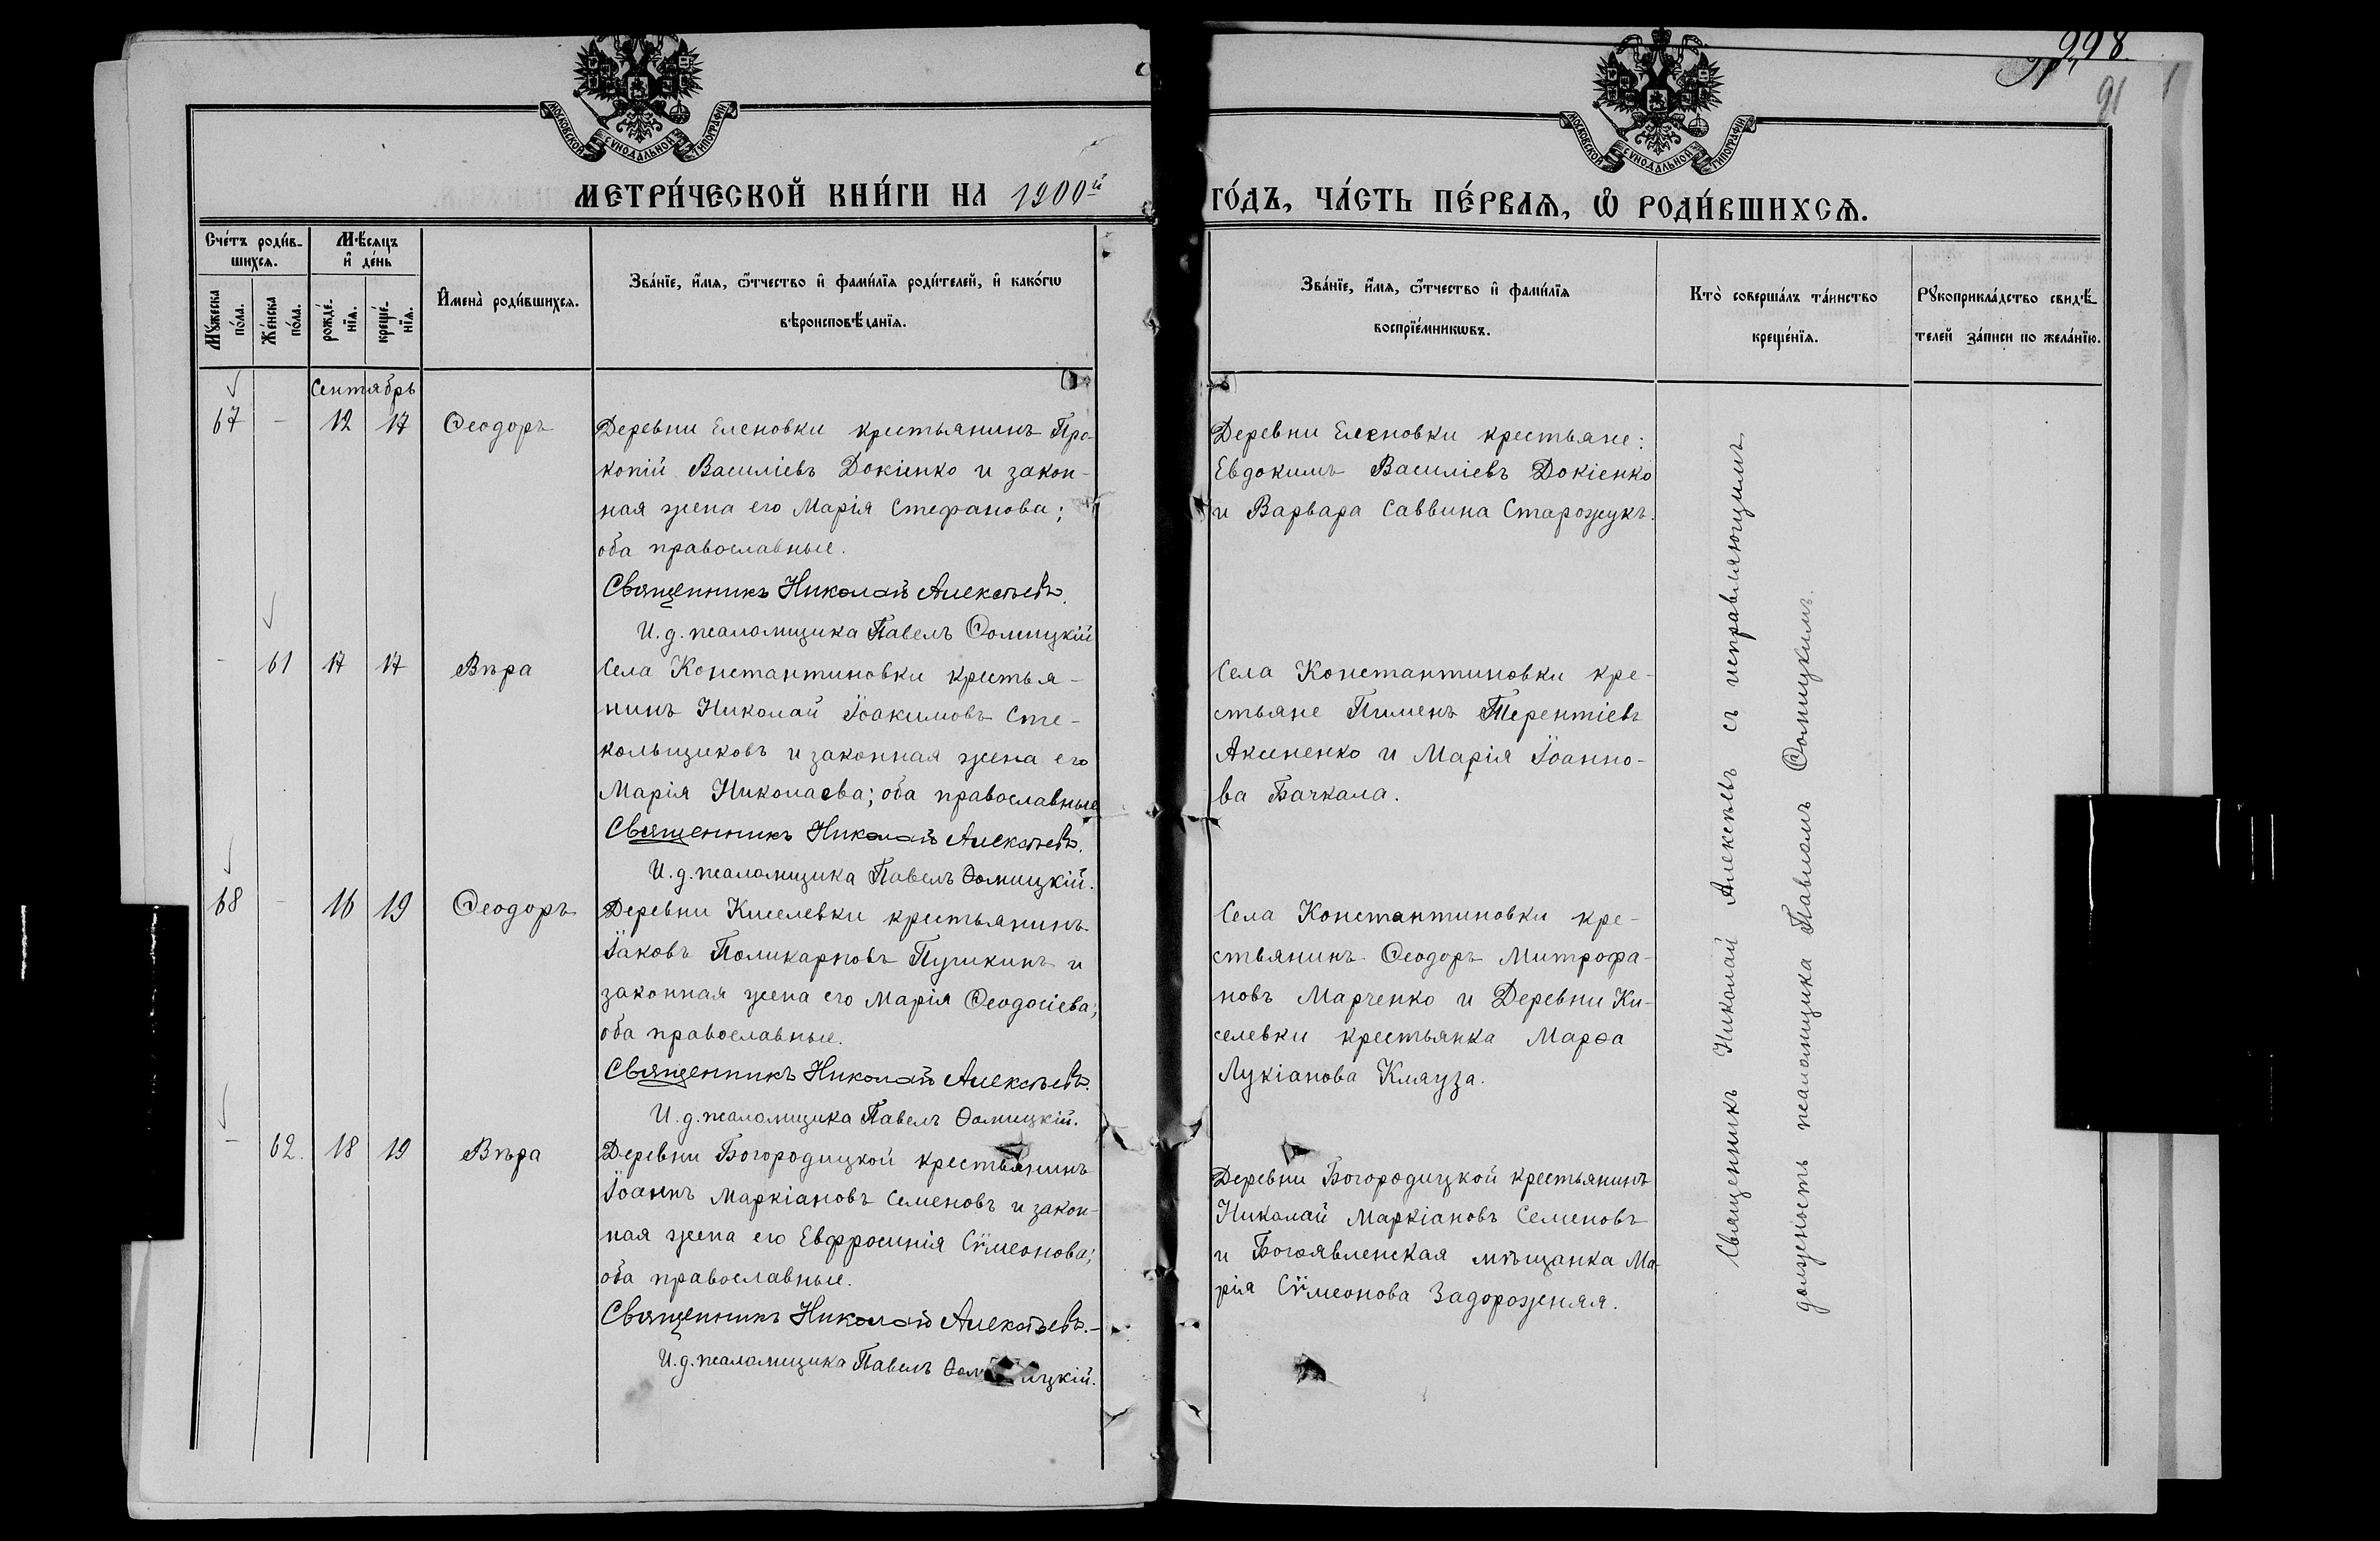 998
91
МОСКОВСКОЙ СѴНОДАЛЬНОЙ ТИПОГРАФІИ
МОСКОВСКОЙ СѴНОДАЛЬНОЙ ТИПОГРАФІИ
МЕТРИ́ЧЕСКОЙ КНИ́ГИ НА 1900й
ГО́ДЪ, ЧА́СТЬ ПЕ́РВАѦ, Ѡ҆ РОДИ́ВШИХСѦ.
Сче́тъ роди́в-
шихсѧ.
Мꙋ́жеска
по́ла.
Же́нска
по́ла.
Мѣ́сѧцъ
и҆ де́нь
рожде́-
нїѧ.
креще́-
нїѧ.
И҆мена̀ роди́вшихсѧ.
Зва́нїе, и҆́мѧ, ѻ҆́тчество и҆ фами́лїѧ роди́телей, и҆ како́гѡ
вѣроисповѣ́данїѧ.
Зва́нїе, и҆́мѧ, ѻ҆́тчество и҆ фами́лїѧ
воспрїе́мникѡвъ.
Кто̀ соверша́лъ та́инство
креще́нїѧ.
Рꙋкоприкла́дство свидѣ́-
телей за́писи по жела́нїю.
Сентябрь
67 - 12 17 Ѳеодоръ
Деревни Еленовки крестьянинъ Про-
копій Василіевъ Докіенко и закон-
ная жена его Марія Стефанова;
оба православные.
Священникъ Николай Алексѣевъ.
И. д. псаломщика Павелъ Ѳомицкій
Деревни Еленовки крестьяне:
Евдокимъ Василіевъ Докіенко
и Варвара Саввина Старожукъ.
- 61 17 17 Вѣра
Села Константиновки крестья-
нинъ Николай Іоакимовъ Сте-
кольщиковъ и законная жена его
Марія Николаева; оба православные
Священникъ Николай Алексѣевъ.
И. д. псаломщика Павелъ Ѳомицкій.
Села Константиновки кре-
стьяне Пименъ Терентіевъ
Аксененко и Марія Іоанно-
ва Бачкала.
68 - 16 19 Ѳеодоръ
Деревни Киселевки крестьянинъ
Іаковъ Поликарповъ Пушкинъ и
законная жена его Марія Ѳеодосіева;
оба православные.
Священникъ Николай Алексѣевъ.
И. д. псаломщика Павелъ Ѳомицкій.
Села Константиновки кре-
стьянинъ Ѳеодоръ Митрофа-
новъ Марченко и Деревни Ки-
селевки крестьянка Марѳа
Лукіанова Кляуза.
- 62. 18 19 Вѣра
Деревни Богородицкой крестьянинъ
Іоаннъ Маркіановъ Семеновъ и закон-
ная жена его Евфросинія Сѵмеонова;
оба православные.
Священникъ Николай Алексѣевъ.
И. д. псаломщика Павелъ Ѳомицкій.
Деревни Богородицкой крестьянинъ
Николай Маркіановъ Семеновъ
и Богоявленская мѣщанка Ма-
рія Сѵмеонова Задорожняя.
Священникъ Николай Алексѣевъ съ исправляющимъ
должность псаломщика Павломъ Ѳомицкимъ.